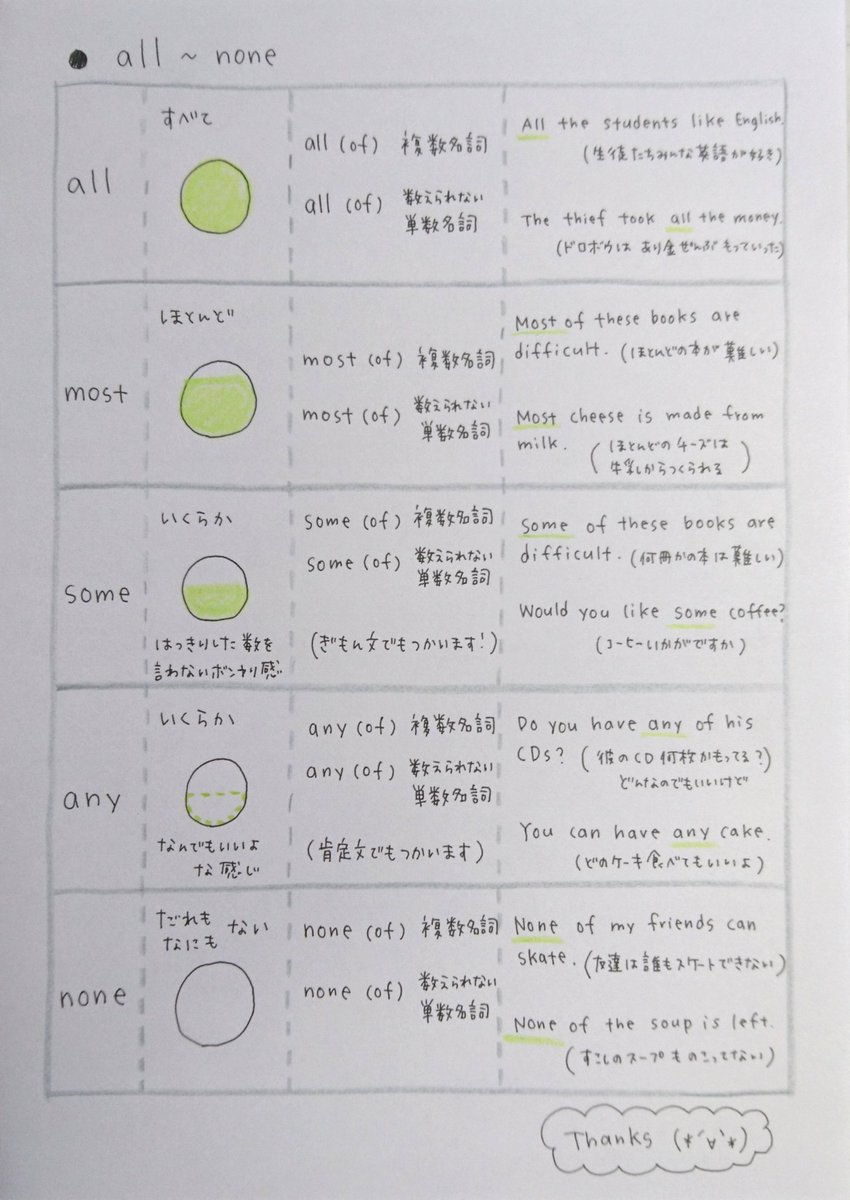 ● all ~ none
all
すべて
all (of) 複数名詞
all (of) 数えられない
単数名詞
All the students like English.
(生徒たちみんな英語が好き)
The thief took all the money.
(ドロボウは あり金ぜんぶ もっていった)
most
ほとんど
most (of) 複数名詞
most (of) 数えられない
単数名詞
Most of these books are
difficult. (ほとんどの本が難しい)
Most cheese is made from
milk. (ほとんどのチーズは
牛乳からつくられる)
some
いくらか
はっきりした数を
言わないボンヤリ感
some (of) 複数名詞
some (of) 数えられない
単数名詞
(ぎもん文でもつかいます!)
Some of these books are
difficult. (何冊かの本は難しい)
Would you like some coffee?
(コーヒーいかがですか)
any
いくらか
なんでもいいよ
な感じ
any (of) 複数名詞
any (of) 数えられない
単数名詞
(肯定文でもつかいます)
Do you have any of his
CDs? (彼のCD何枚かもってる?)
どんなのでもいいけど
You can have any cake.
(どのケーキ食べてもいいよ)
none
だれも
なにも ない
none (of) 複数名詞
none (of) 数えられない
単数名詞
None of my friends can
skate. (友達は誰もスケートできない)
None of the soup is left.
(すこしのスープものこってない)
Thanks (*´∀`*)